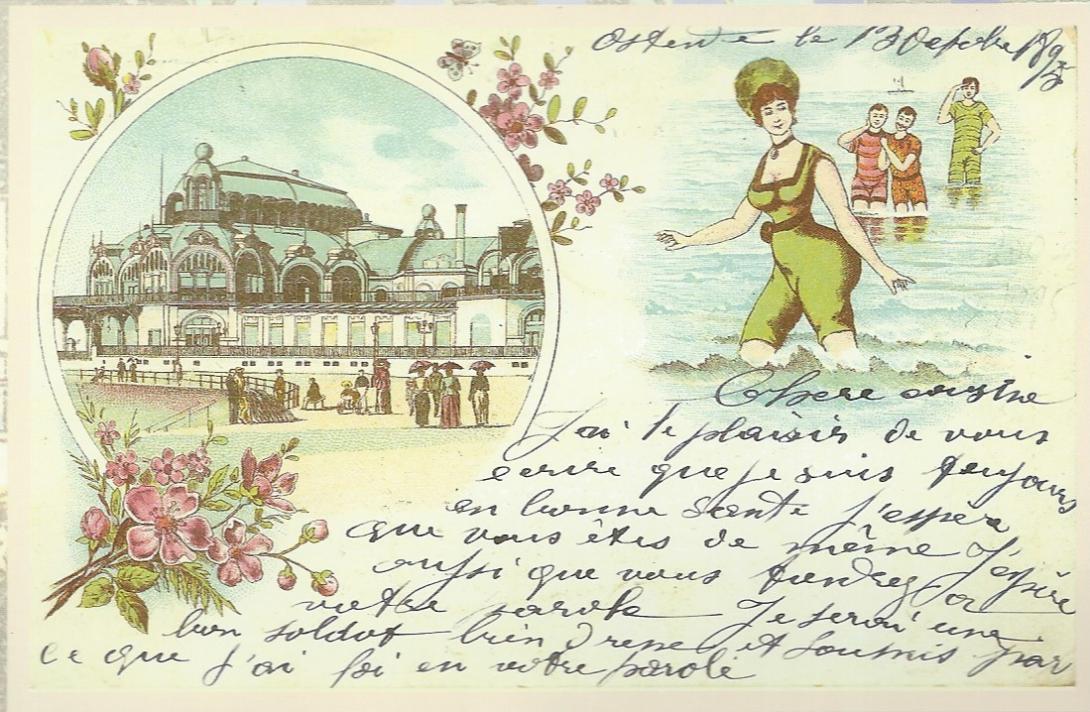 Ostende le 13 Octobre 189
Chere cousine
J'ai le plaisir de vous
ecrire que je suis toujours
en bonne sante j'espere
que vous êtes de même J'espère
aussi que vous tendrez
votre parole Je serai une
bon soldat bien et soumis par
ce que j'ai foi en votre parole